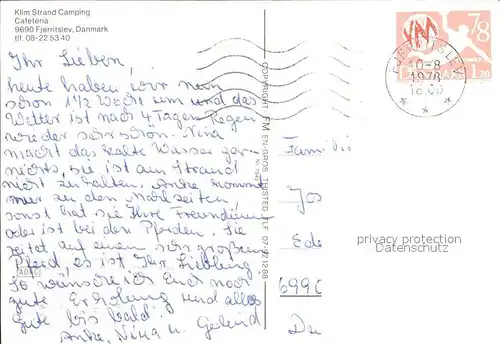 Klim Strand Camping
Cafeteria
9690 Fjerritslev, Danmark
tlf. 08-22 53 40
Ihr Lieben,
heute haben wir nun
schon 1 1/2 Woche um und das
Wetter ist nach 4 Tagen Regen
wieder sehr schön. Nina
macht das kalte Wasser gar
nichts, sie ist am Strand
nicht zu halten. Anke kommt
nur zu den Mahlzeiten,
sonst hat sie Ihre Freundinnen
oder ist bei den Pferden. Sie
reitet auf einem sehr großen
Pferd, es ist Ihr Liebling
So wünsche ich Euch noch
gute Erholung und alles
Gute bis bald.
Anke, Nina u. Gerlind
COPYRIGHT: F M EN-GROS THISTED TLF 07-92 12 88
78
1.20
FJERRITSLEV
10-8
1978
18.00
Familie
Jos
Ede
699C
Deu
privacy protection
Datenschutz